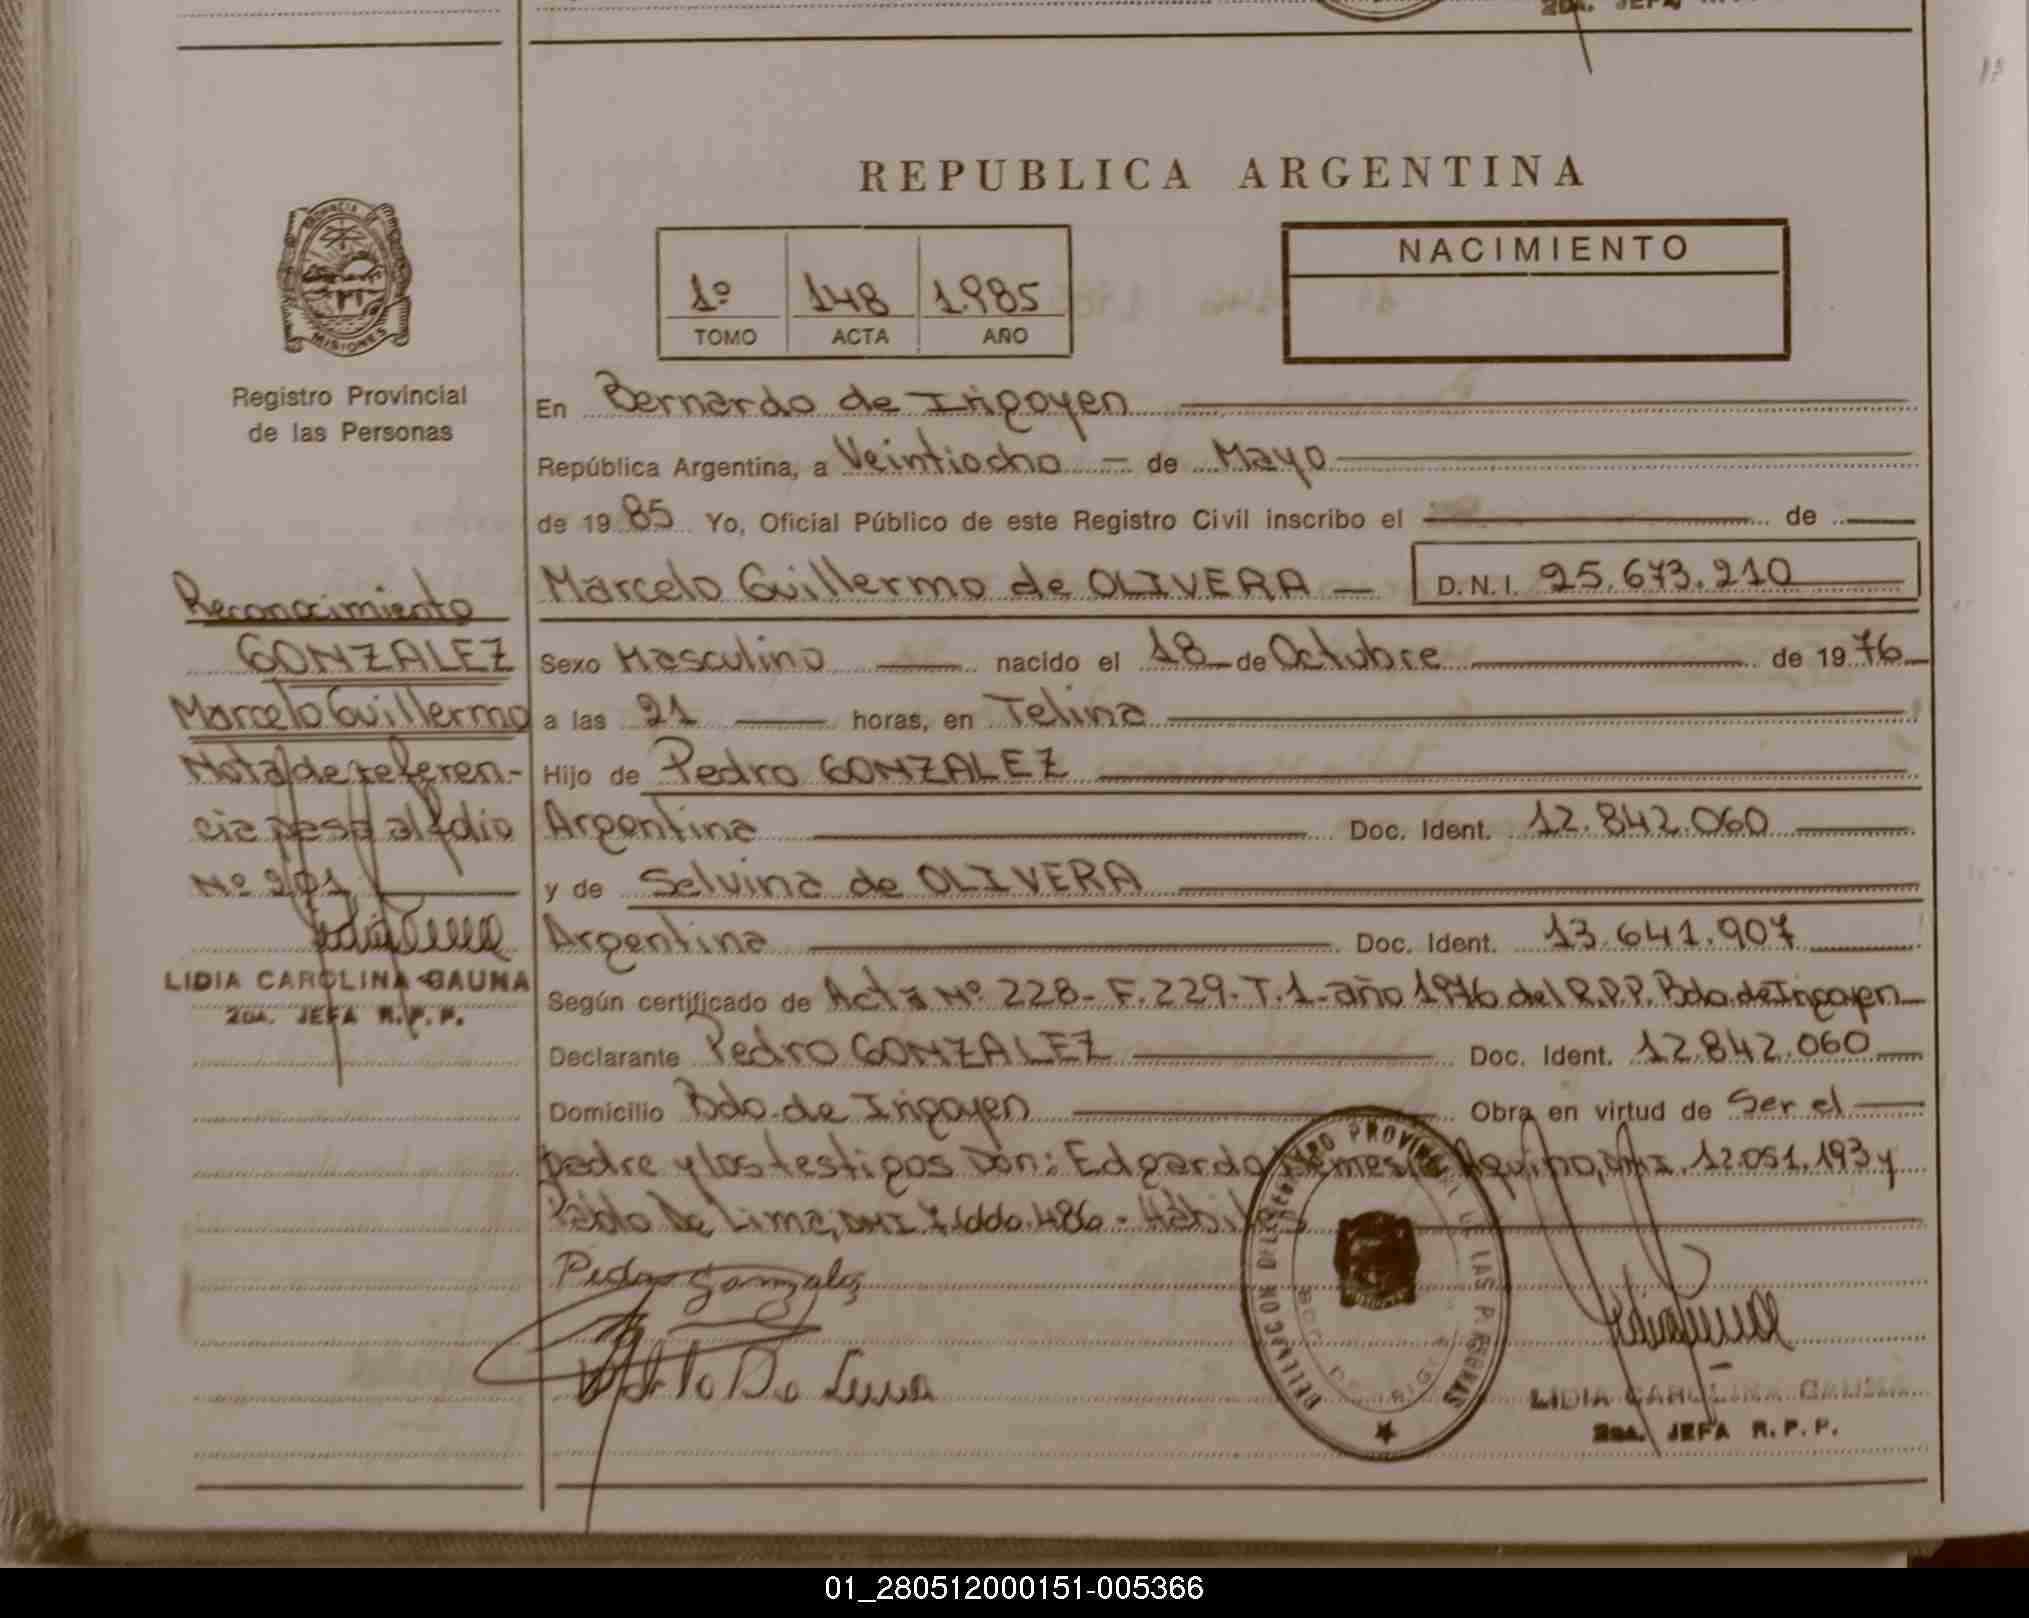 REPUBLICA ARGENTINA
PROVINCIA DE
MISIONES
Registro Provincial
de las Personas
1º 148 1.985
TOMO ACTA AÑO
NACIMIENTO
En Bernardo de Irigoyen
República Argentina, a Veintiocho - de Mayo
de 19 85 Yo, Oficial Público de este Registro Civil inscribo el de
Marcelo Guillermo de OLIVERA — D.N.I. 25.673.210
Sexo Masculino nacido el 18 de Octubre de 19 76
a las 21 horas, en Telina
Hijo de Pedro GONZALEZ
Argentina Doc. Ident. 12.842.060
y de Selvina de OLIVERA
Argentina Doc. Ident. 13.641.907
Según certificado de Acta Nº 228- F. 229- T. 1- año 1976 del R.P.P. Bdo. de Irigoyen
Declarante Pedro GONZALEZ Doc. Ident. 12.842.060
Domicilio Bdo. de Irigoyen Obra en virtud de Ser el
padre y los testigos Don: Edgardo Aquino, DNI. 12.051.193 y
De Lima, DNI. - Hábiles
Pedro Gonzalez
De Lima
LIDIA CAROLINA GAUNA
2DA. JEFA R.P.P.
Reconocimiento
GONZALEZ
Marcelo Guillermo
Nota de referen-
cia pasa al folio
Nº 201
LIDIA CAROLINA GAUNA
2DA. JEFA R.P.P.
01_280512000151-005366